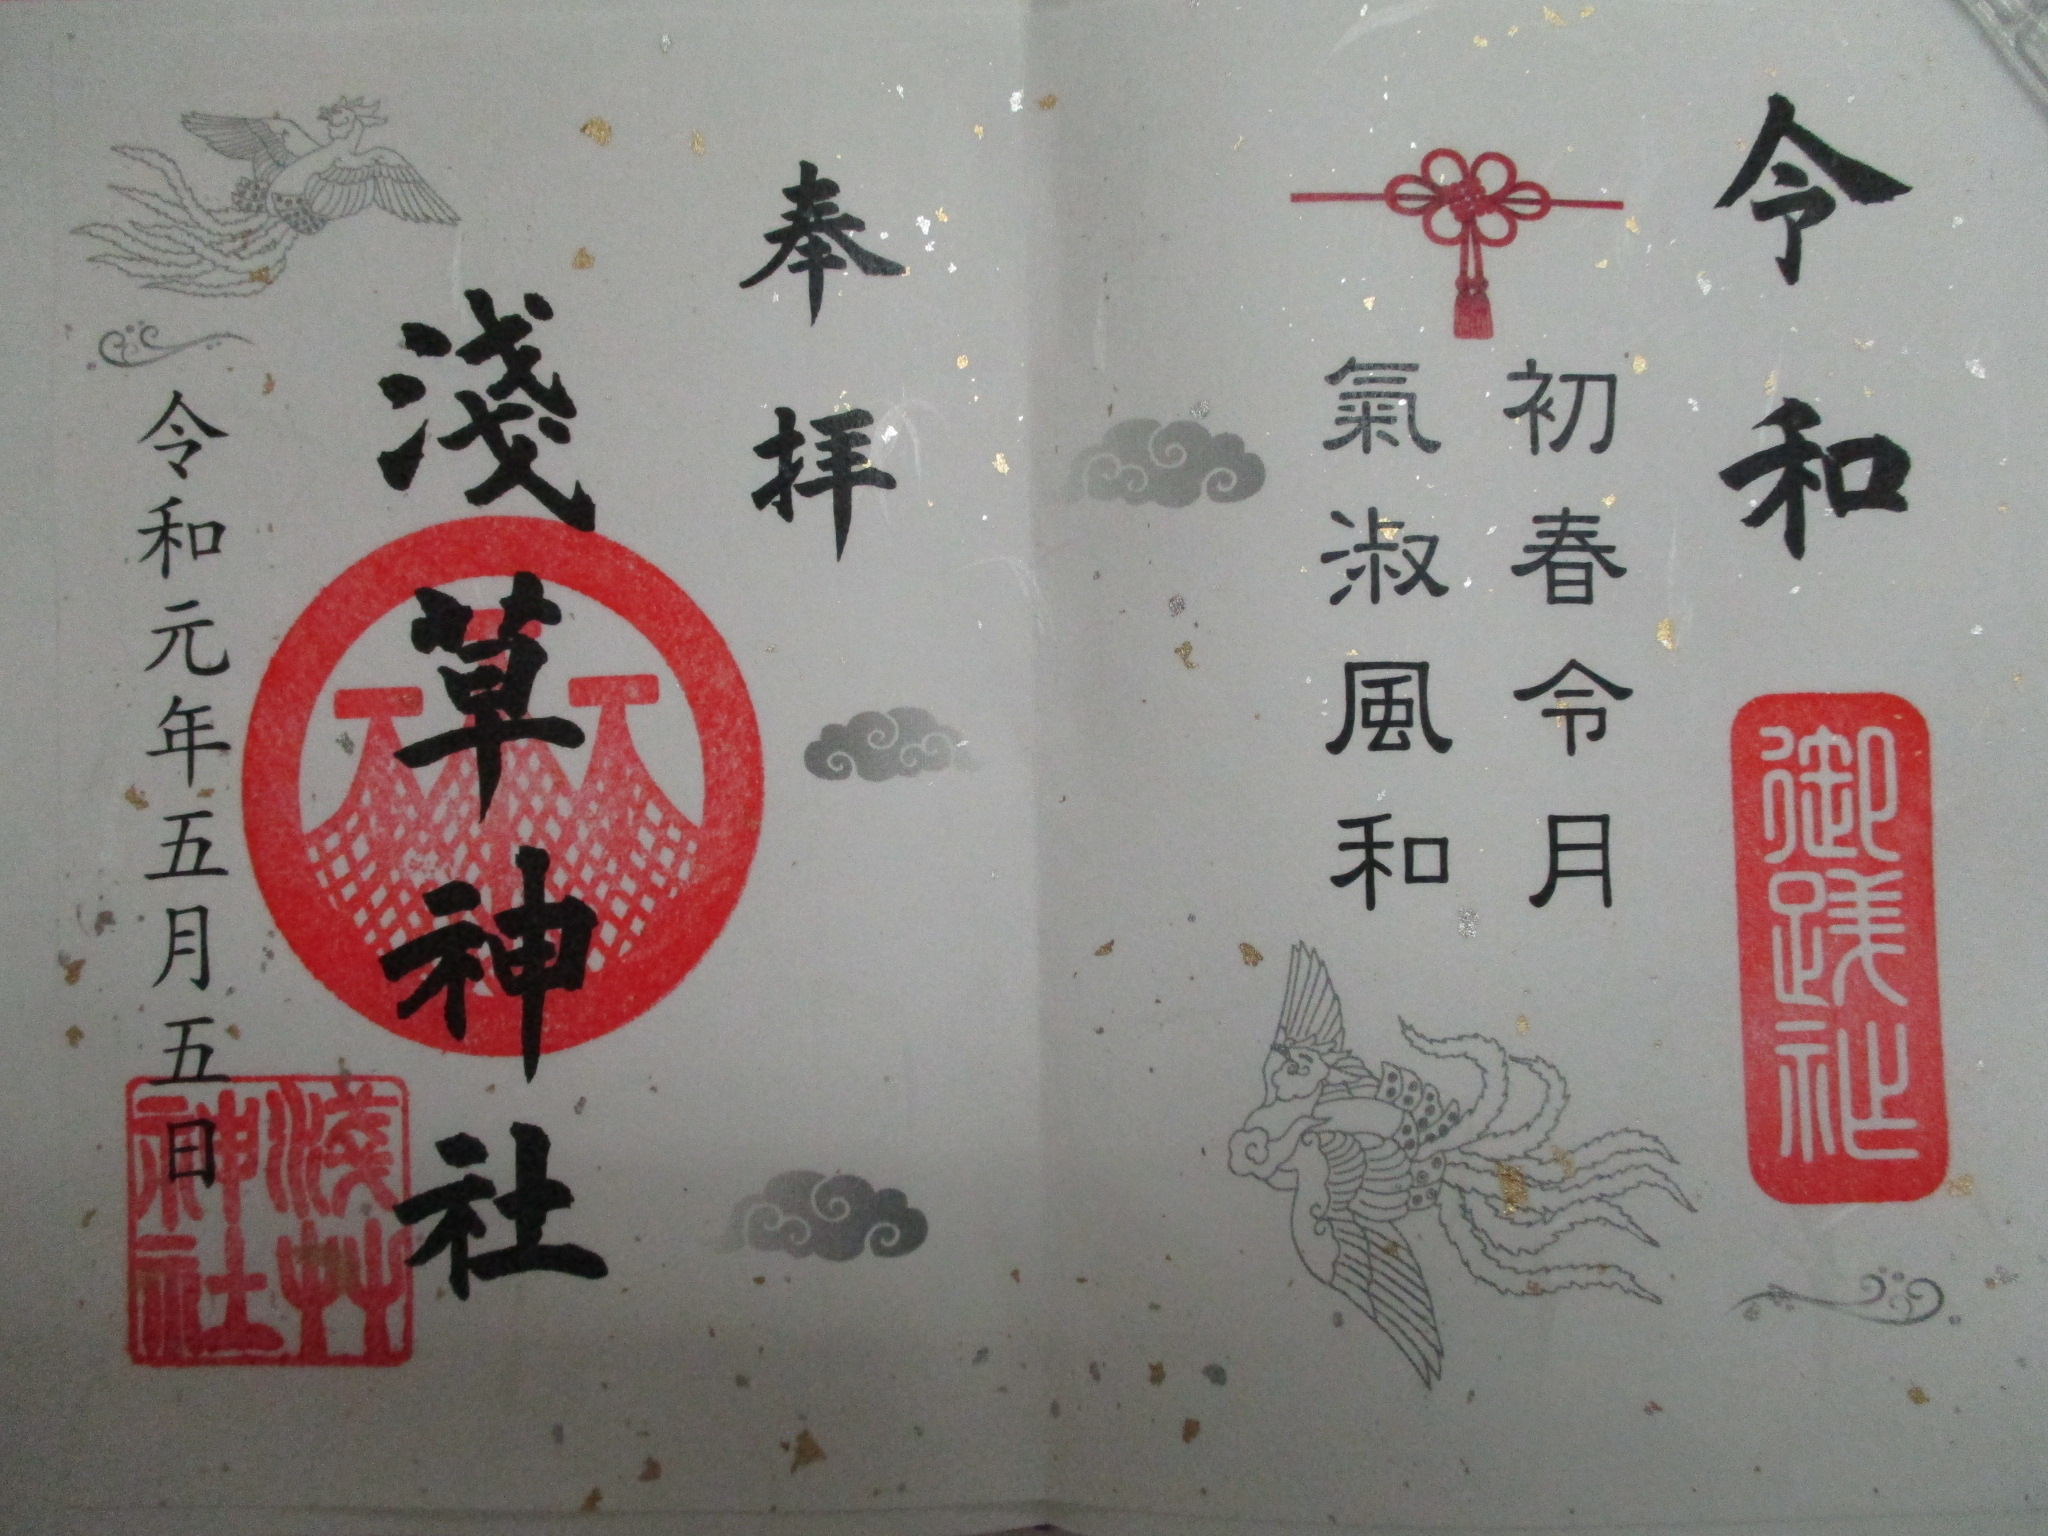 令和
御踐祚
初春令月
氣淑風和
奉拝
淺草神社
令和元年五月五日
淺艸神社